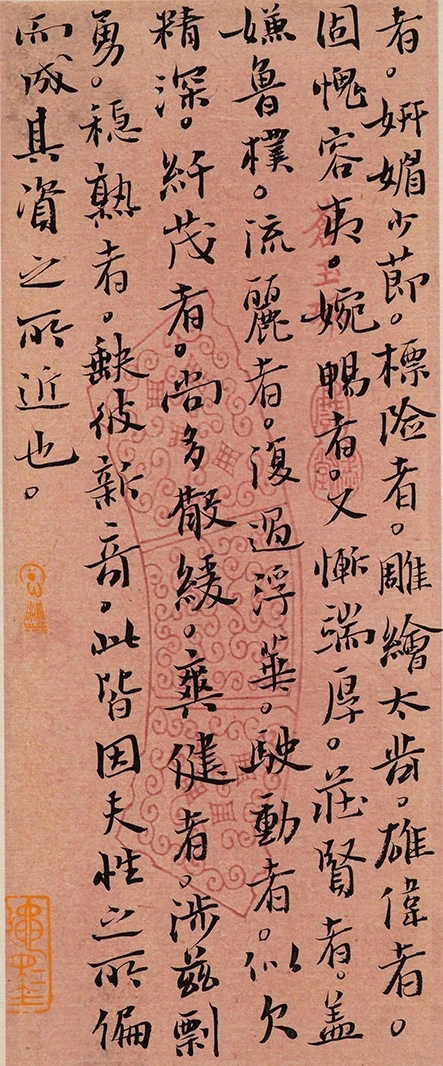 者。妍媚少莭。標險者。雕繪太苛。雄偉者。
固愧容夷。婉暢者。又慚端厚。莊賢者。盖
嫌魯樸。流麗者。復過浮華。駛動者。似欠
精深。纤茂者。尚多散緩。爽健者。涉茲剽
勇。穏熟者。缺彼新奇。此皆因夫性之所偏
而成其資之所近也。